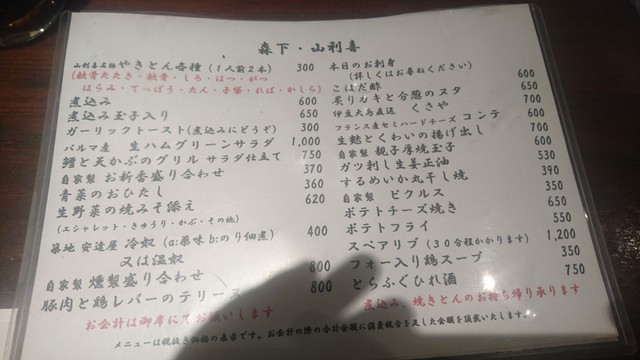 森下・山利喜
山利喜名物 やきとん各種（1人前2本） 300
（軟骨たたき・軟骨・しろ・はつ・がつ
はらみ・てっぽう・たん・子袋・れば・かしら）
煮込み 600
煮込み玉子入り 650
ガーリックトースト（煮込みにどうぞ） 300
パルマ産 生ハムグリーンサラダ 1,000
鱈と天かぶのグリル サラダ仕立て 750
自家製 お新香盛り合わせ 370
青菜のおひたし 360
生野菜の焼みそ添え 620
（エシャレット・きゅうり・かぶ・その他）
築地 安達屋 冷奴（a:薬味 b:のり佃煮） 400
又は温奴
自家製 燻製盛り合わせ 800
豚肉と鶏レバーのテリーヌ 800
お会計は御席にてお願いします
本日のお刺身
（詳しくはお尋ねください）
こはだ酢 600
炙りカキと分葱のヌタ 650
伊豆大島直送 くさや 700
フランス産セミハードチーズ コンテ 600
生麩とくわいの揚げ出し 700
自家製 親子厚焼玉子 600
ガツ刺し生姜正油 530
するめいか丸干し焼 390
自家製 ピクルス 350
ポテトチーズ焼き 650
ポテトフライ 550
スペアリブ（30分程かかります） 1,200
フォー入り鶏スープ 350
とらふぐひれ酒 750
煮込み、焼きとんのお持ち帰り承ります
メニューは税抜き価格の表示です。お会計の際の合計金額に消費税を足した金額を頂戴いたします。